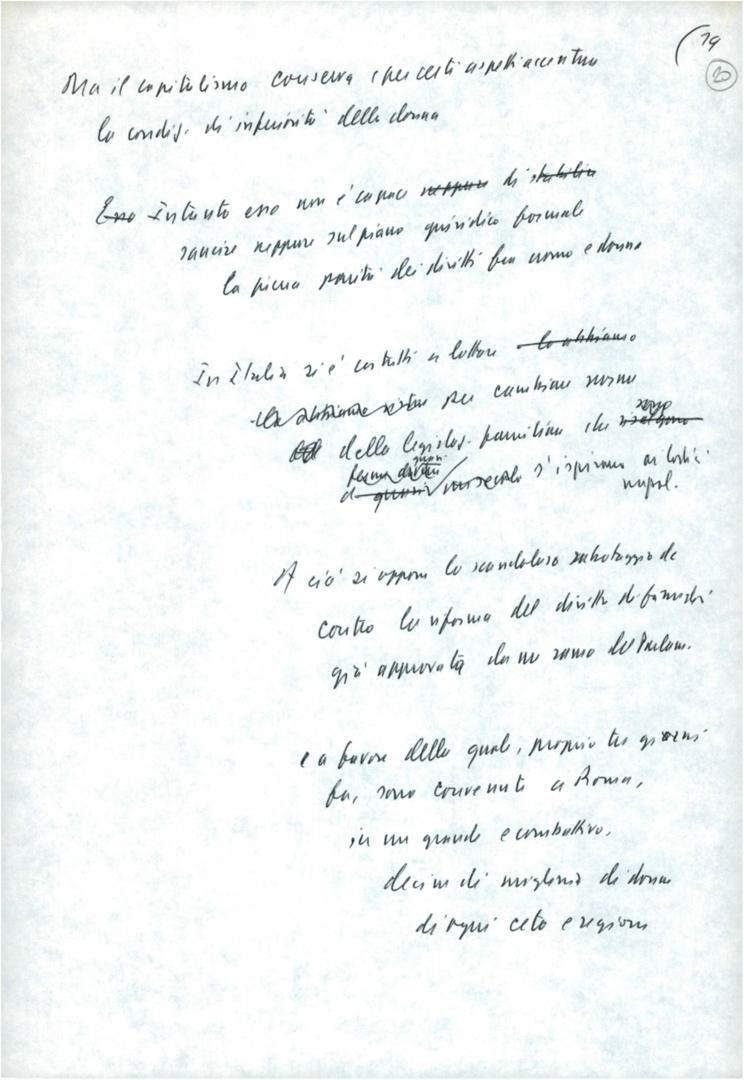 (19
20
Ma il capitalismo conserva e per certi aspetti accentua
la condiz. di inferiorità della donna
Esso Intanto esso non è capace neppure di stabilire
sancire neppure sul piano giuridico formale
la piena parità dei diritti fra uomo e donna
In Italia si è costretti a lottare lo abbiamo
per cambiare norme
della legislaz. familiare che risalgono
sono
quasi
d quasi un secolo s'ispirano ai codici
napol.
A ciò si oppone lo scandaloso sabotaggio dc
contro la riforma del diritto di famiglia
già approvata da un ramo del Parlam.
e a favore della quale, proprio tre giorni
fa, sono convenute a Roma,
in un grande e combattivo,
decine di migliaia di donne
di ogni ceto e regione